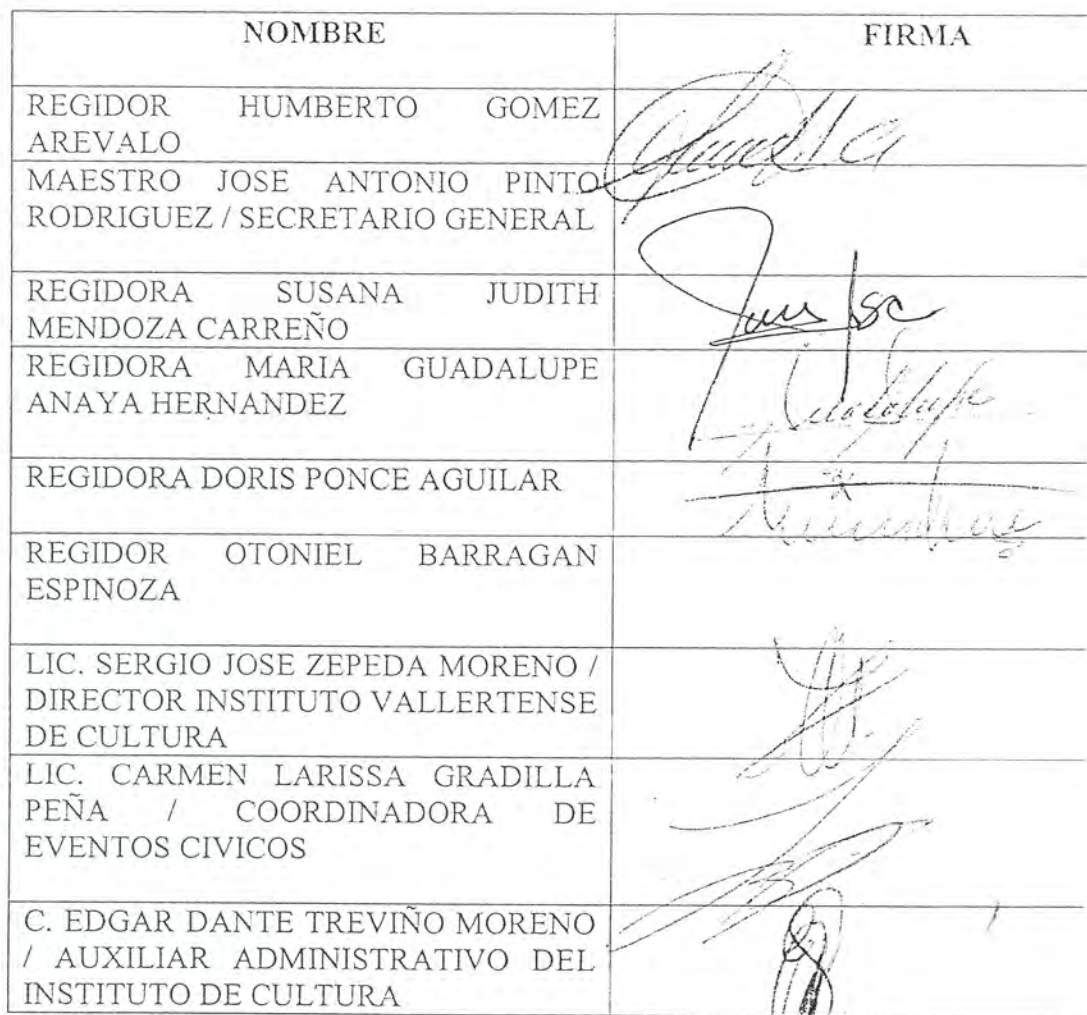 NOMBRE FIRMA
REGIDOR HUMBERTO GOMEZ
AREVALO
MAESTRO JOSE ANTONIO PINTO
RODRIGUEZ / SECRETARIO GENERAL
REGIDORA SUSANA JUDITH
MENDOZA CARREÑO
REGIDORA MARIA GUADALUPE
ANAYA HERNANDEZ
Guadalupe
REGIDORA DORIS PONCE AGUILAR
REGIDOR OTONIEL BARRAGAN
ESPINOZA
LIC. SERGIO JOSE ZEPEDA MORENO /
DIRECTOR INSTITUTO VALLERTENSE
DE CULTURA
LIC. CARMEN LARISSA GRADILLA
PEÑA / COORDINADORA DE
EVENTOS CIVICOS
C. EDGAR DANTE TREVIÑO MORENO
/ AUXILIAR ADMINISTRATIVO DEL
INSTITUTO DE CULTURA